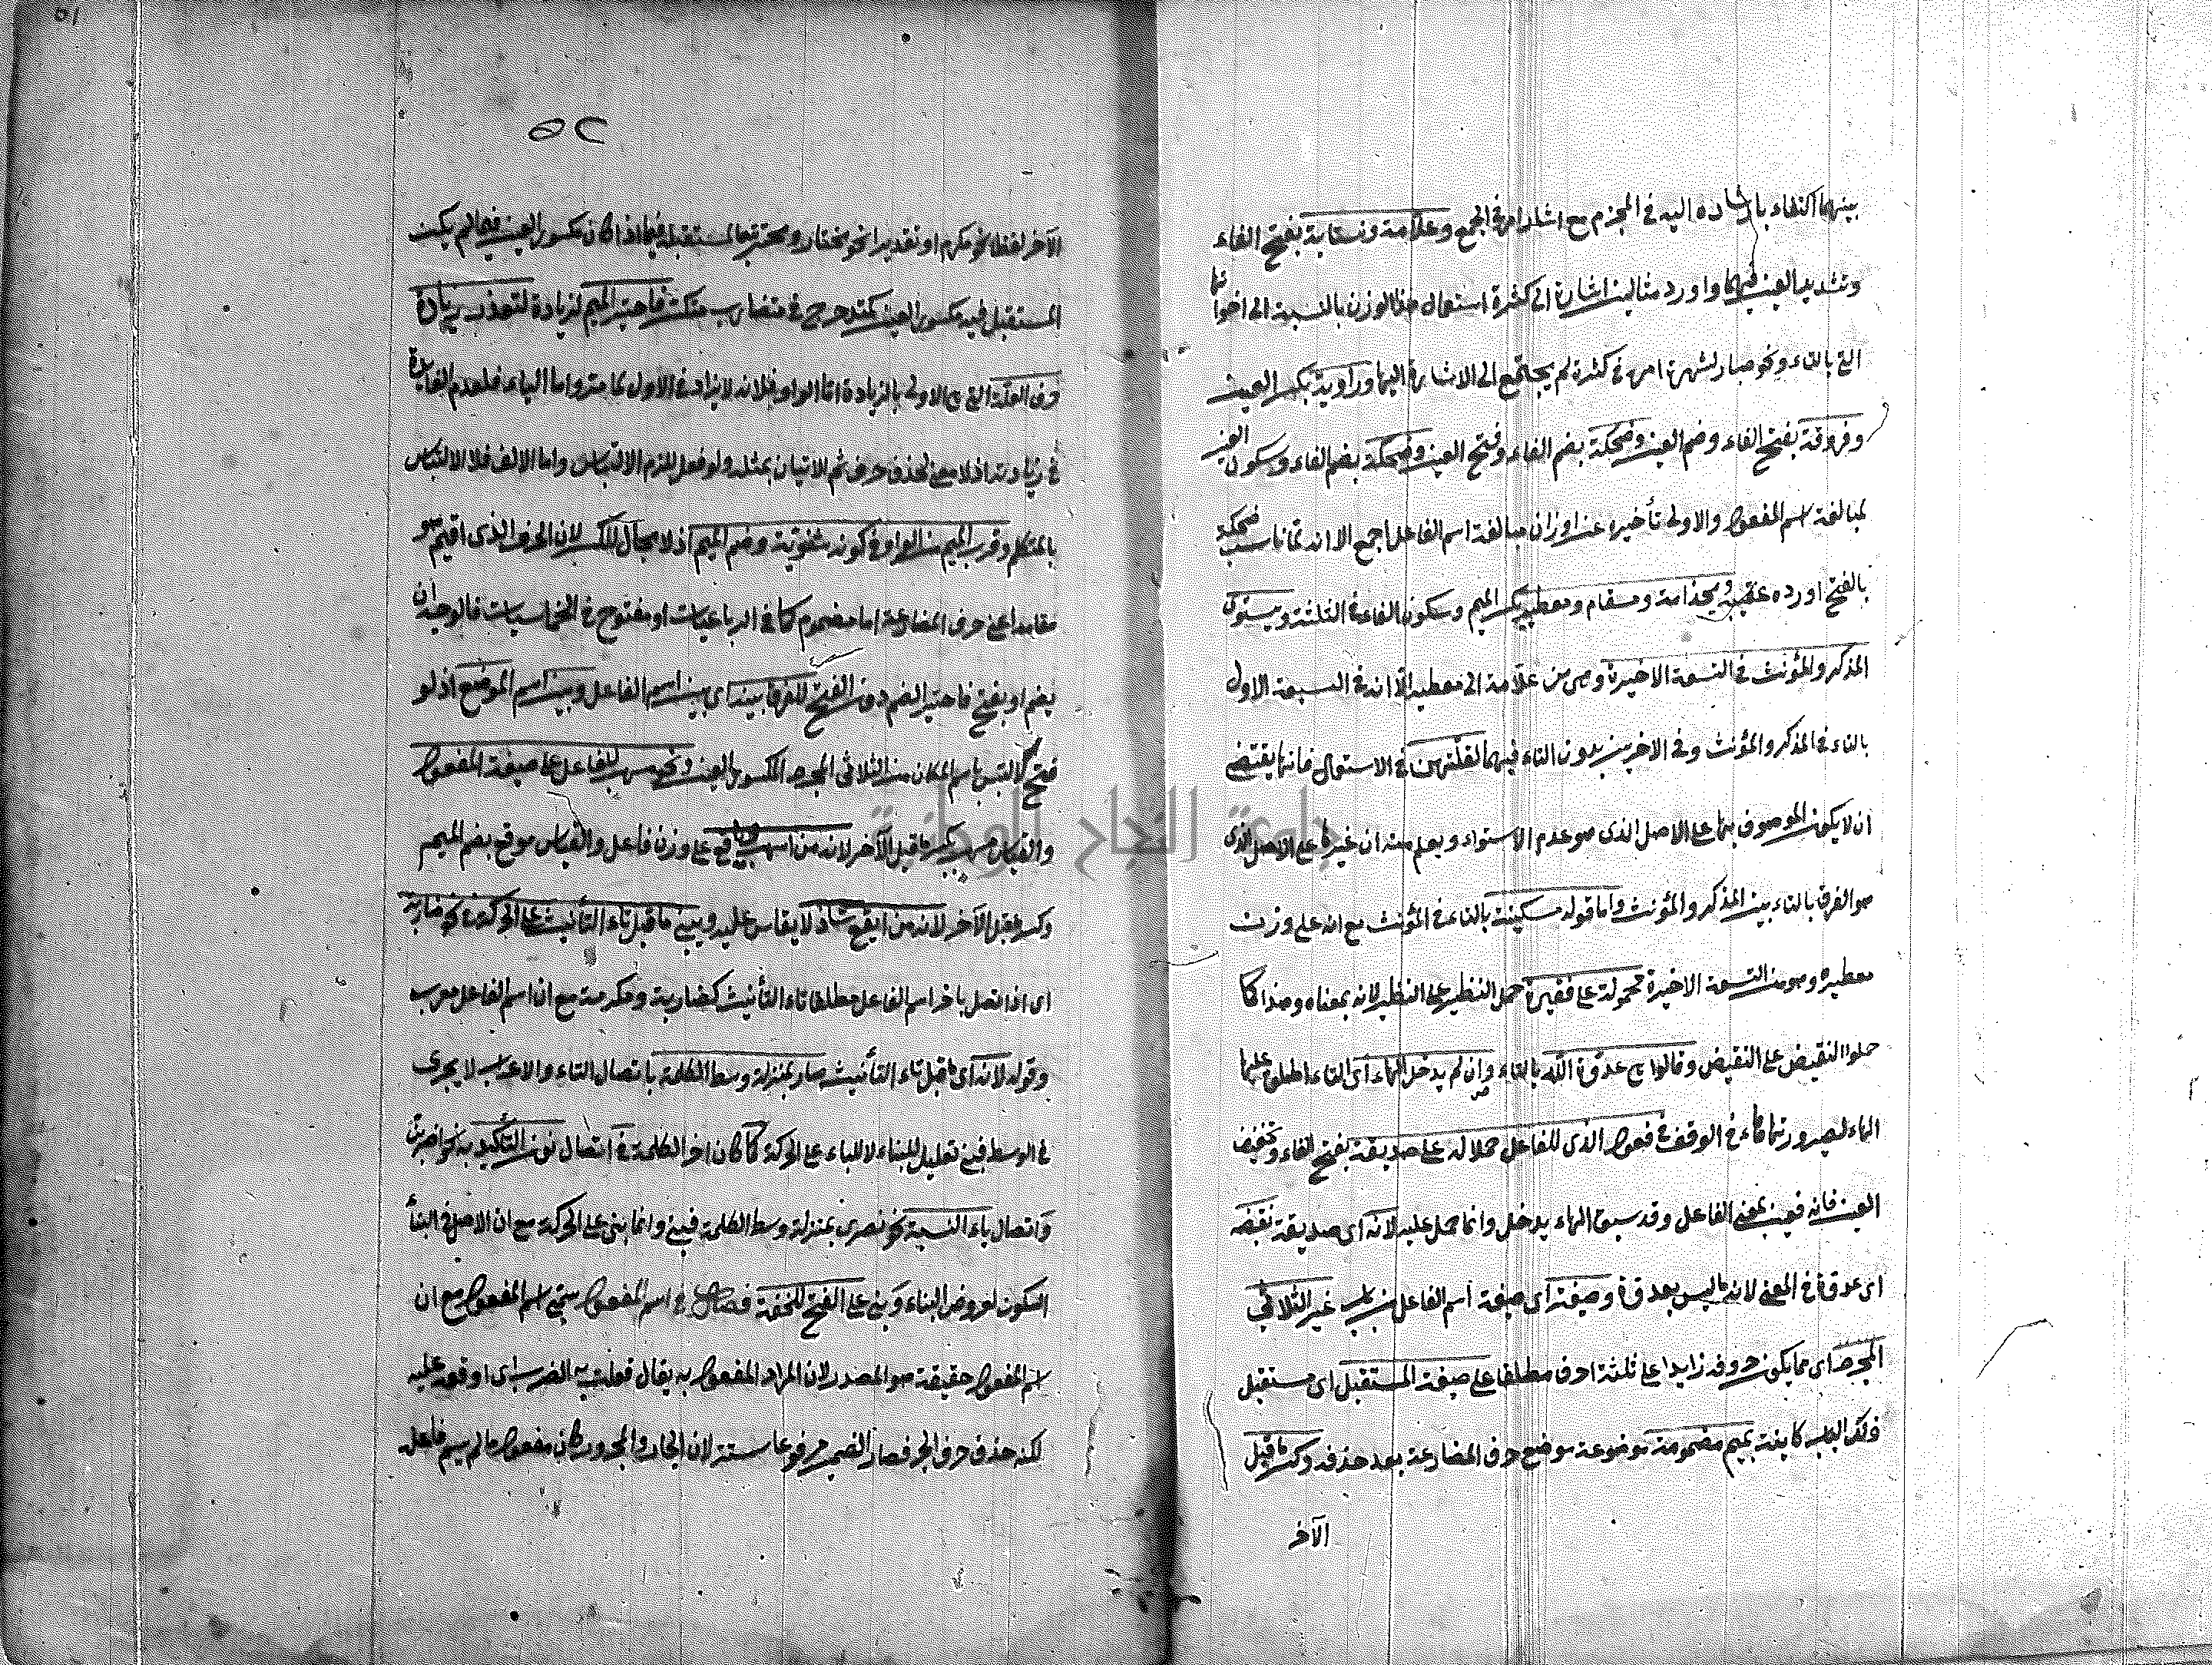 بينهما اكتفاء باشارة اليه في المجزم مع اشار امره في الجمع وعلامة ونسابة بفتح الفاء
وتشديد العين فيهما واورد مثالين اشارة الى كثرة استعمال هذا الوزن بالنسبة الى اخواتها
التي بالتاء ونحو صبار لشهرة امره في كثرة لم يحتج الى الاشارة اليها وراوية بكسر العين
وفروقة بفتح الفاء وضم العين وضحكة بضم الفاء وفتح العين وضحكة بضم الفاء وسكون العين
لمبالغة اسم المفعول والاولى تأخيره عن اوزان مبالغة اسم الفاعل اجمع الا انه لما ناسب ضحكة
بالفتح اورده عقيبه ومجذامة ومسقام ومعطير بكسر الميم وسكون الفاء في الثلثة ويستوى
المذكر والمؤنث في التسعة الاخيرة وهي من علامة الى معطير الا انه في السبعة الاول
بالتاء في المذكر والمؤنث وفي الاخرين بدون التاء فيهما لقلتهن في الاستعمال فانها يقتضي
ان لا يكون الموصوف بها على الاصل الذى هو عدم الاستواء ويعلم منه ان غيرها على الاصل الذى
هو الفرق بالتاء بين المذكر والمؤنث واما قوله مسكينة بالتاء في المؤنث مع انه على وزن
معطيره وهو من التسعة الاخيرة محمولة على فقيرة حمل النظير على النظير لانه بمعناه وهذا كما
حملوا النقيض على النقيض وقالوا هي عدوة الله بالتاء وان لم يدخل الهاء اى التاء اطلق عليها
الهاء لصيرورتها هاء في الوقف في فعول الذى للفاعل حملا له على صديقة بفتح الفاء وتخفيف
العين فانه فعيل بمعنى الفاعل وقد سبق الهاء يدخل وانما حمل عليه لانه اى صديقة نقيضه
اى عدوة في المعنى لانه ليس بعدوة وصيغته اى صيغة اسم الفاعل من باب غير الثلاثي
المجرد اى مما يكون حروفه زايدا على ثلثة احرف مطلقا على صيغة المستقبل اى مستقبل
ذلك الباب كاينة بميم مضمومة موضوعة موضع حرف المضارعة بعد حذفه وكسر ما قبل
الآخر
٥٢
الآخر لفظا نحو مكرم او تقديرا نحو مختار ومحمر تبعا لمستقبله فيما اذا كان مكسور العين فيما لم يكن
المستقبل فيه مكسور العين كمتدحرج في متضارب متكسر فاختير الميم لزيادة لتعذر زيادة
حرف العلة التي هي الاولى بالزيادة اما الواو فلانه لا يزاد في الاول لما مر واما الياء فلعدم الفايدة
في زيادته اذ لا معنى لحذف حرف ثم الاتيان بمثله ولو فعل للزم الالتباس واما الالف فلا الالتباس
بالمتكلم وقرب الميم من الواو في كونه شفوية وضم الميم اذ لا مجال للكسر لان الحرف الذى اقيم هو
مقامه اعنى حرف المضارعة اما مضموم كما في الرباعيات او مفتوح في الخماسيات فالوجه ان
يضم او يفتح فاختير الضم دون الفتح للفرق بينه اى بين اسم الفاعل وبين اسم الموضع اذ لو
فتح لالتبس باسم المكان من الثلاثي المجرد المكسور العين ونحو مسهب للفاعل على صيغة المفعول
والقياس مسهب بكسر ما قبل الآخر لانه من اسهب ويافع على وزن فاعل والقياس موفع بضم الميم
وكسر ما قبل الآخر لانه من ايفع شاذ لا يقاس عليه ويبنى ما قبل تاء التأنيث على الحركة في نحو ضاربة
اى اذا اتصل باخر اسم الفاعل مطلقا تاء التأنيث كضاربة ومكرمة مع ان اسم الفاعل معرب
وقوله لانه اى ما قبل تاء التأنيث صار بمنزلة وسط الكلمة باتصال التاء والاعراب لا يجرى
في الوسط فبنى تعليل للبناء لا للبناء على الحركة كما كان اخر الكلمة في اتصال نون التأكيد به نحو اضربن
واتصال ياء النسبة نحو نصرى بمنزلة وسط الكلمة فبنى وانما بنى على الحركة مع ان الاصل في البناء
السكون لعروض البناء وبنى على الفتح للخفة فصل في اسم المفعول سمي اسم المفعول مع ان
اسم المفعول حقيقة هو المصدر لان المراد المفعول به يقال فعلت به الضرب اى اوقعته عليه
لكنه حذف حرف الجر فصار الضمير مرفوعا لان الجار والمجرور كان مفعول ما لم يسم فاعله